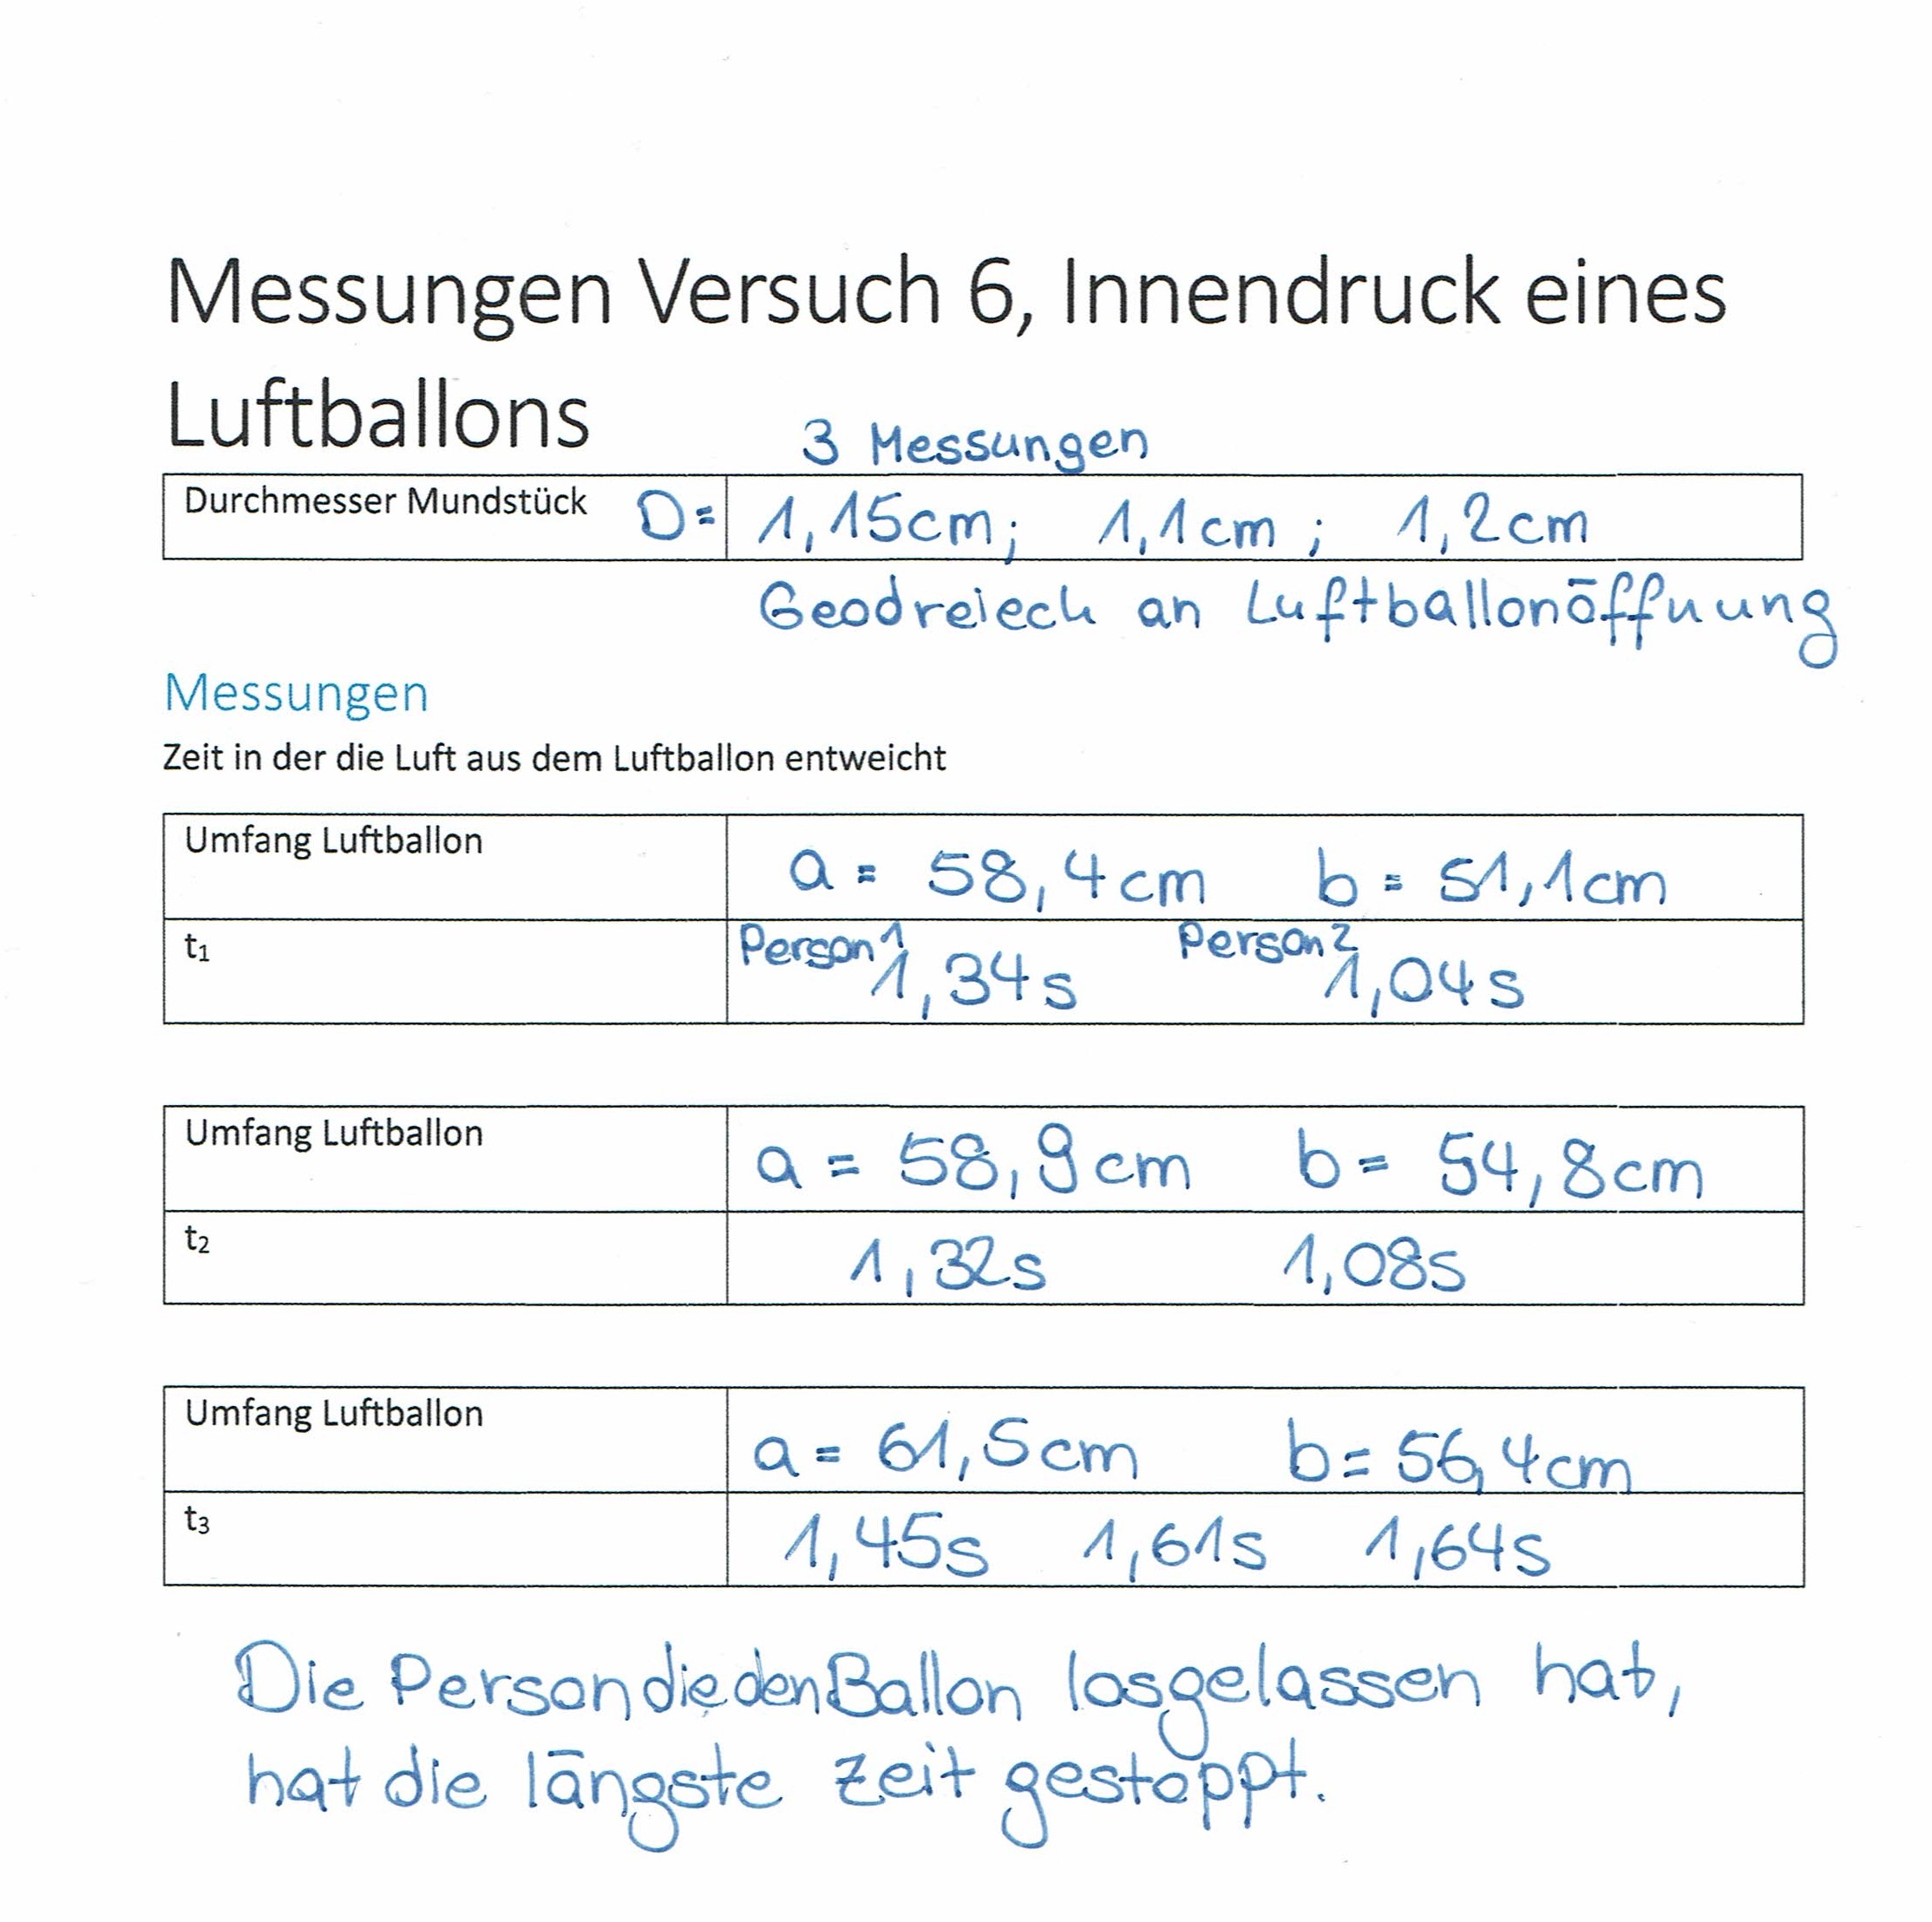 Messungen Versuch 6, Innendruck eines
Luftballons
3 Messungen
Durchmesser Mundstück D= 1,15cm; 1,1cm ; 1,2cm
Geodreieck an Luftballonöffnung
Messungen
Zeit in der die Luft aus dem Luftballon entweicht
Umfang Luftballon a = 58,4cm b = 51,1cm
t₁ Person 1 1,34s Person 2 1,04s
Umfang Luftballon a = 58,9cm b = 54,8cm
t₂ 1,32s 1,08s
Umfang Luftballon a = 61,5cm b = 56,4cm
t₃ 1,45s 1,61s 1,64s
Die Person die den Ballon losgelassen hat,
hat die längste Zeit gestoppt.